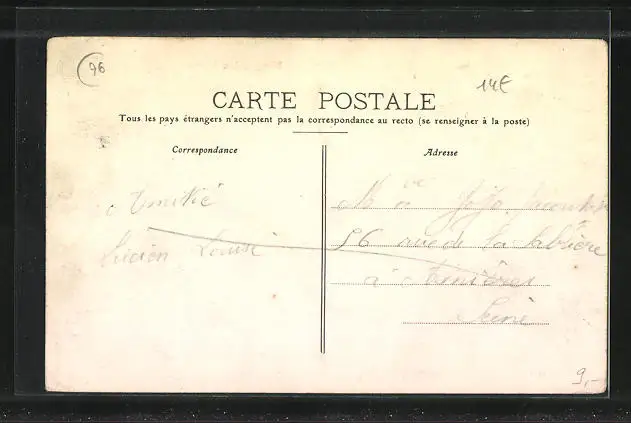 76
14€
CARTE POSTALE
Tous les pays étrangers n'acceptent pas la correspondance au recto (se renseigner à la poste)
Correspondance
Adresse
Amitié
Lucien Louise
56 de la Sablière
à Asnières
Seine
9,-